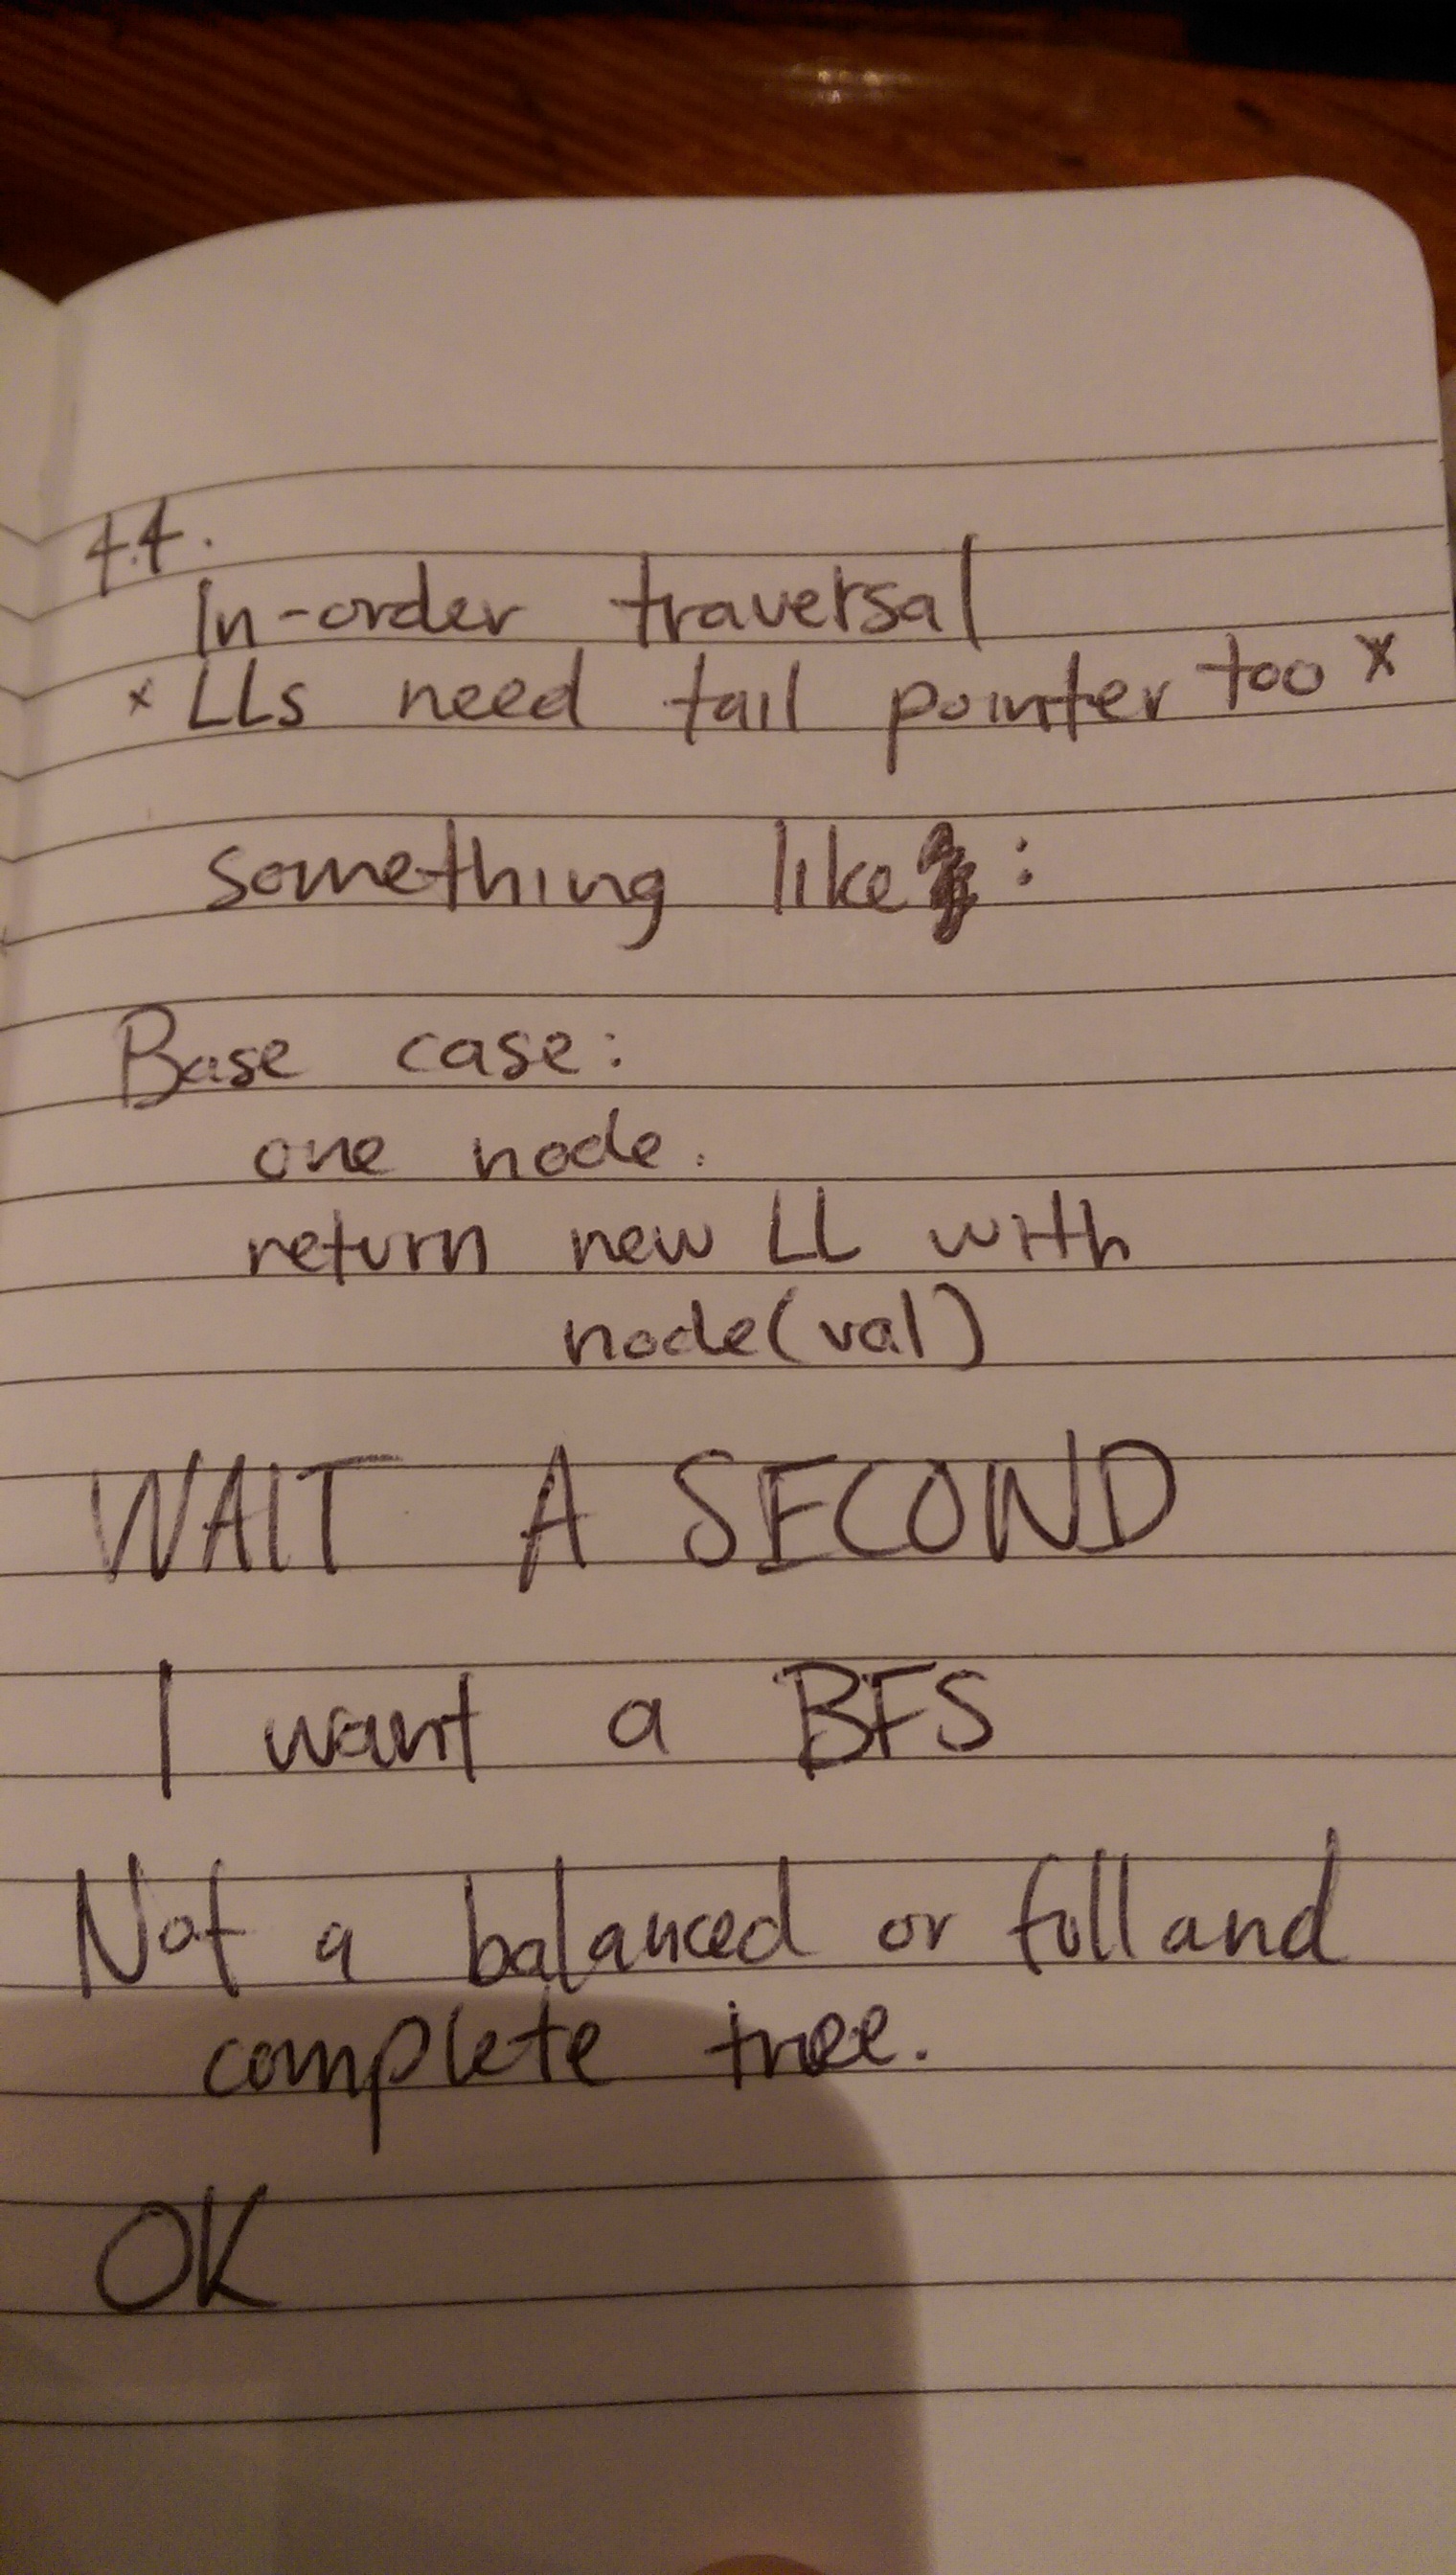 4.4.
In-order traversal
* LLs need tail pointer too *
something like :
Base case:
one node.
return new LL with
node(val)
WAIT A SECOND
I want a BFS
Not a balanced or full and
complete tree.
OK